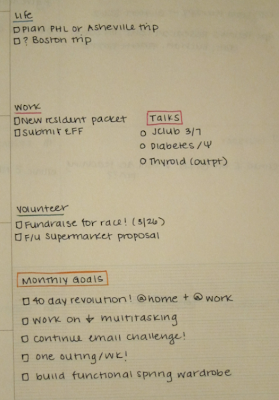 Life
Plan PHL or Asheville trip
? Boston trip
Work
New resident packet
Submit EFF
Talks
JClub 3/7
Diabetes/Ψ
Thyroid (outpt)
Volunteer
Fundraise for race! (3/26)
F/u supermarket proposal
Monthly Goals
40 day revolution! @home + @work
work on ↓ multitasking
continue email challenge!
one outing/wk!
build functional spring wardrobe